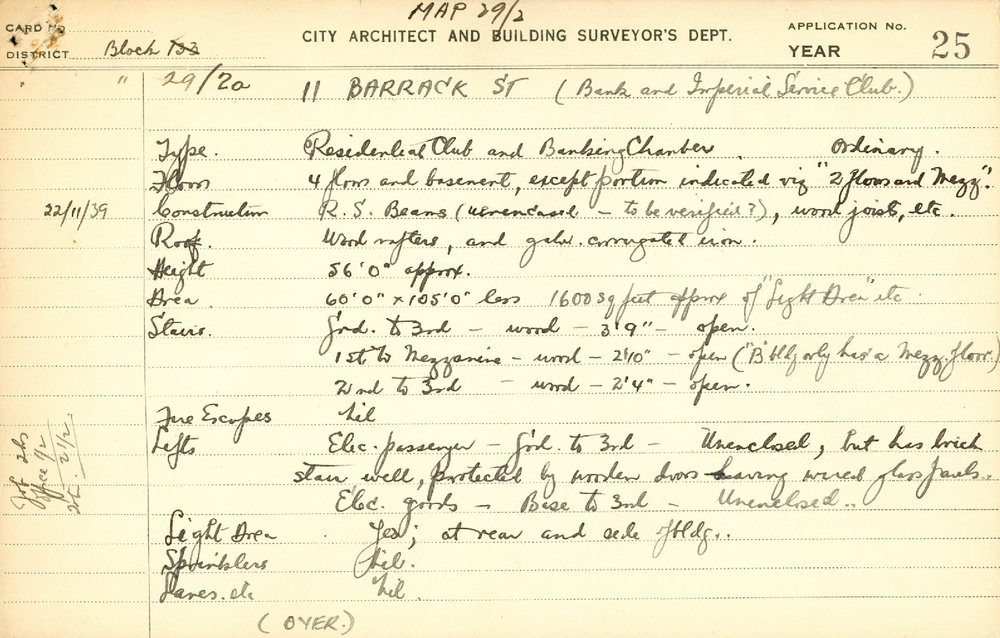 MAP 29/2
CARD No
CITY ARCHITECT AND BUILDING SURVEYOR'S DEPT.
APPLICATION No.
DISTRICT Block 133
YEAR 25
" " 29/2a 11 BARRACK ST (Bank and Imperial Service Club.)
Type. Residential Club and Banking Chamber. Ordinary.
Floors 4 floors and basement, except portion indicated viz "2 floors and Mezz".
22/11/39 Construction R.S. Beams (unencased - to be verified?), wood joists, etc.
Roof. Wood rafters, and galv. corrugated iron.
Height 56'0" approx.
Area. 60'0" x 105'0" less 1600 sq feet approx of "Light Area" etc.
Stairs. Grd. to 3rd - wood - 3'9" - open.
1st to Mezzanine - wood - 2'10" - open ("B" bldg only has a Mezz. floor.)
2nd to 3rd - wood - 2'4" - open.
Fire Escapes Nil
Lifts Elec. passenger - Grd. to 3rd - Unenclosed, but has brick
stair well, protected by wooden doors having wired glass panels..
Elec. goods - Base to 3rd - Unenclosed..
Light Area Yes; at rear and side of bldg..
Sprinklers Nil.
Lanes. etc Nil.
(OVER.)
Job 2hs
Office 1/2
2 1/2